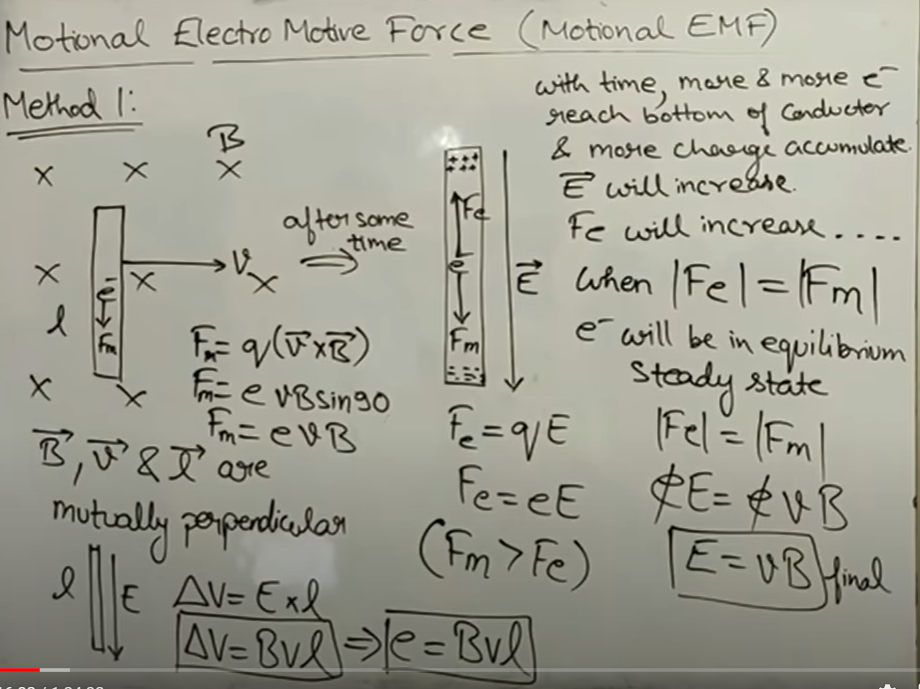 Motional Electro Motive Force (Motional EMF)
Method 1:
B
x x x
l
e⁻
Fm
x
x
V
x
x
x
after some
time
⇒
Fm = q(v⃗ x B⃗)
Fm = e vB sin90
Fm = e v B
B⃗, v⃗ & l⃗ are
mutually perpendicular
l
E
ΔV = E x l
ΔV = Bvl ⇒ e = Bvl
+++
+++
Fe
e
Fm
---
E⃗
Fe = qE
Fe = eE
(Fm > Fe)
with time, more & more e⁻
reach bottom of Conductor
& more charge accumulate.
E⃗ will increase.
Fe will increase ....
when |Fe| = |Fm|
e⁻ will be in equilibrium
Steady state
|Fe| = |Fm|
eE = evB
E = vB final